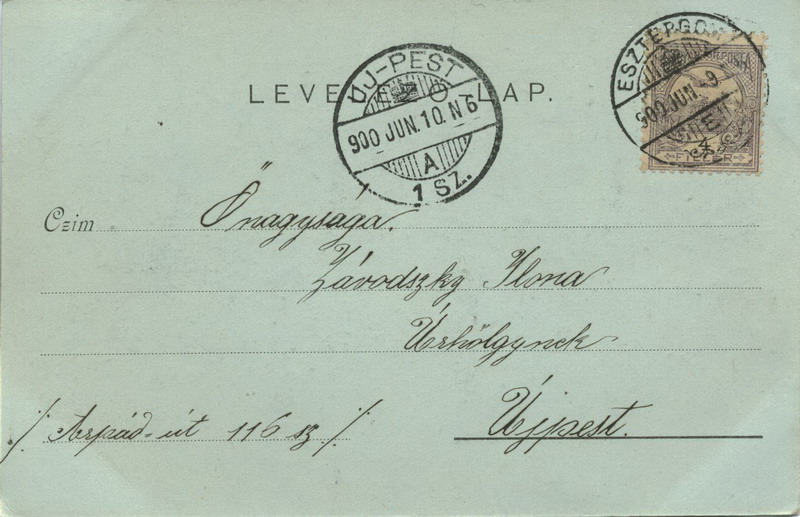 LEVELEZŐ-LAP.
ÚJ-PEST
900 JUN. 10. N 6
A
1 SZ.
ESZTERGOM
900 JUN -9
4
FILLÉR
Czim Őnagysága.
Závodszky Ilona
Úrhölgynek
Újpest.
·/· Árpád-út 116 sz ·/·